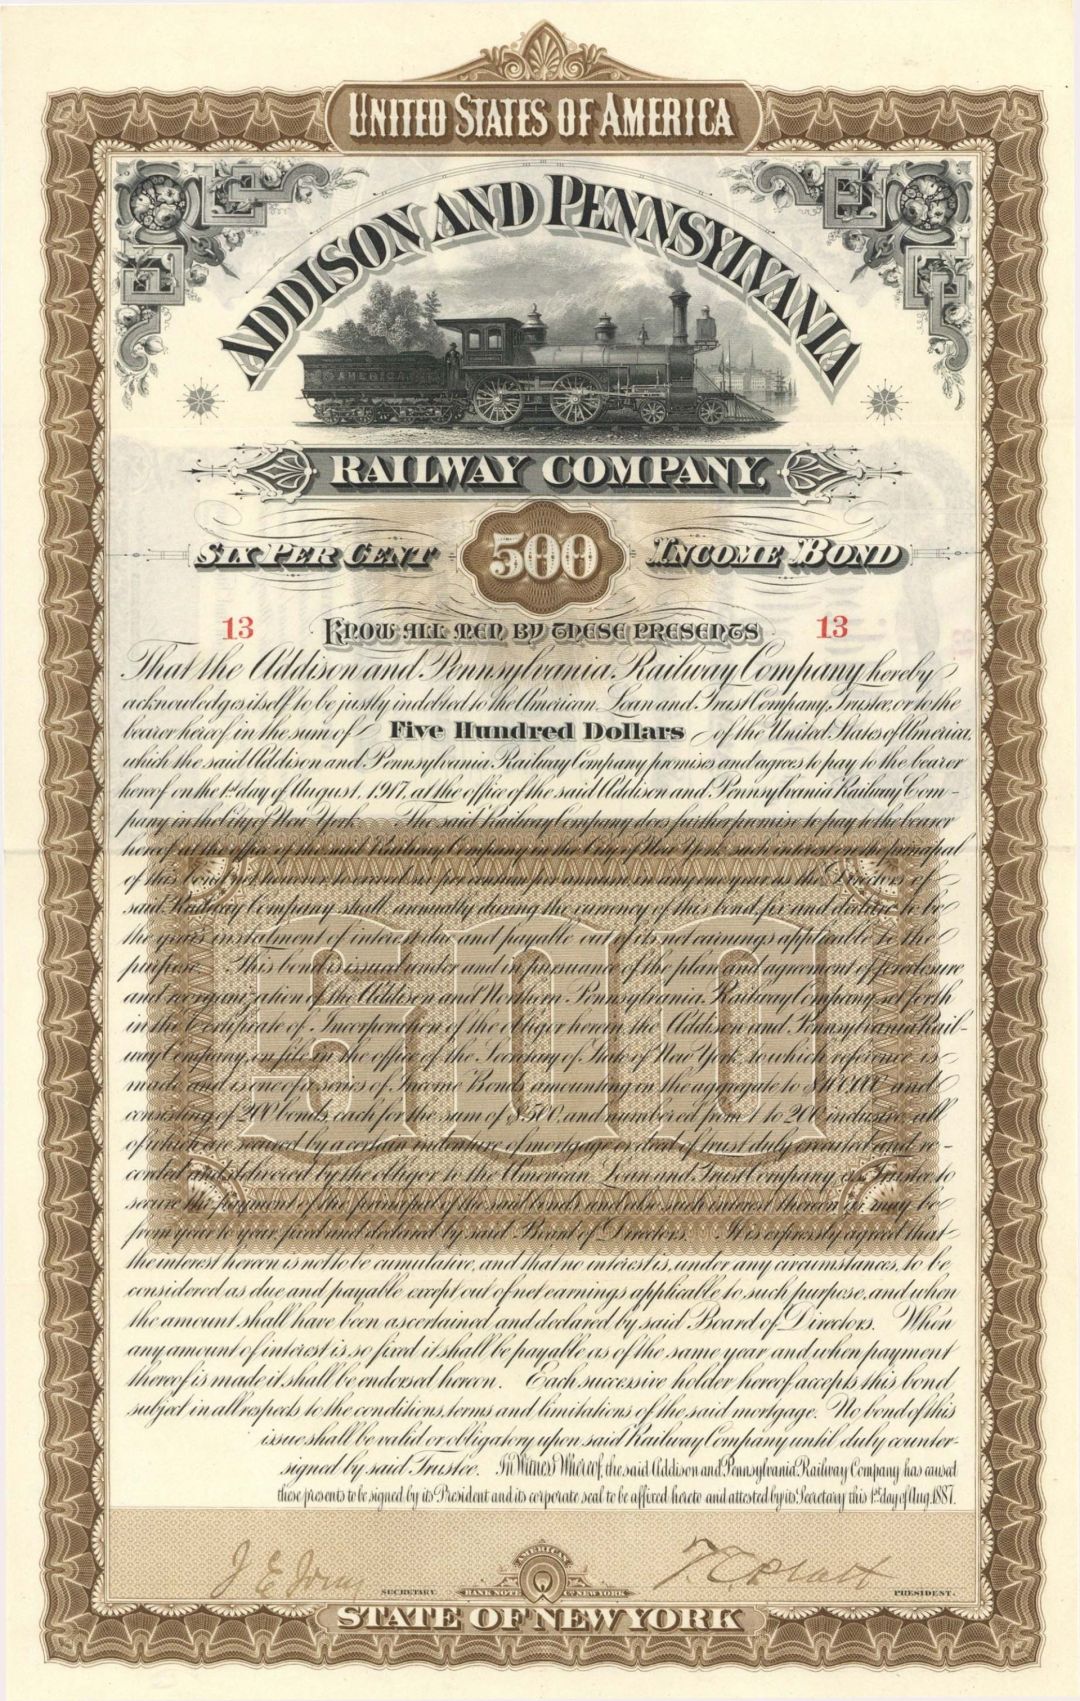 UNITED STATES OF AMERICA
ADDISON AND PENNSYLVANIA
AMERICA
RAILWAY COMPANY,
SIX PER CENT 500 INCOME BOND
13 KNOW ALL MEN BY THESE PRESENTS 13
That the Addison and Pennsylvania Railway Company hereby
acknowledges itself to be justly indebted to the American Loan and Trust Company, Trustee, or to the
bearer hereof in the sum of Five Hundred Dollars of the United States of America,
which the said Addison and Pennsylvania Railway Company promises and agrees to pay to the bearer
hereof on the 1st day of August, 1917, at the office of the said Addison and Pennsylvania Railway Com-
pany in the City of New York. The said Railway Company does further promise to pay to the bearer
hereof at the office of the said Railway Company in the City of New York such interest on the principal
of this bond, not however to exceed six per centum per annum, in any one year as the Directors of
said Railway Company shall annually during the currency of this bond, fix and declare to be
the year's instalment of interest due and payable out of its net earnings applicable to the
purpose. This bond is issued under and in pursuance of the plan and agreement of foreclosure
and reorganization of the Addison and Northern Pennsylvania Railway Company set forth
in the Certificate of Incorporation of the obligor herein, the Addison and Pennsylvania Rail-
way Company, on file in the office of the Secretary of State of New York, to which reference is
made and is one of a series of Income Bonds amounting in the aggregate to $100,000 and
consisting of 200 bonds each for the sum of $500, and numbered from 1 to 200 inclusive, all
of which are secured by a certain indenture of mortgage or deed of trust duly executed and re-
corded and delivered by the obligor to the American Loan and Trust Company as Trustee to
secure the payment of the principal of the said bonds and also such interest thereon as may be
from year to year fixed and declared by said Board of Directors. It is expressly agreed that
the interest hereon is not to be cumulative, and that no interest is, under any circumstances, to be
considered as due and payable except out of net earnings applicable to such purpose, and when
the amount shall have been ascertained and declared by said Board of Directors. When
any amount of interest is so fixed it shall be payable as of the same year and when payment
thereof is made it shall be endorsed hereon. Each successive holder hereof accepts this bond
subject in all respects to the conditions, terms and limitations of the said mortgage. No bond of this
issue shall be valid or obligatory upon said Railway Company until duly counter-
signed by said Trustee. In Witness Whereof, the said Addison and Pennsylvania Railway Company has caused
these presents to be signed by its President and its corporate seal to be affixed hereto and attested by its Secretary this 1st day of Aug. 1887.
J E Jones SECRETARY. T. C. Platt PRESIDENT.
AMERICAN
BANK NOTE CO. NEW YORK
STATE OF NEW YORK